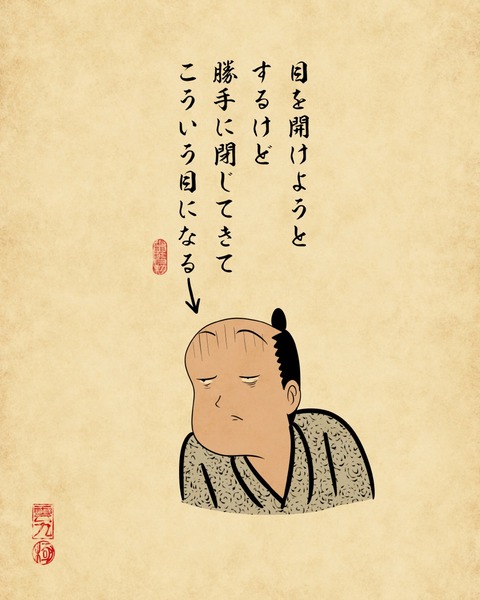 目を開けようと
するけど
勝手に閉じてきて
こういう目になる